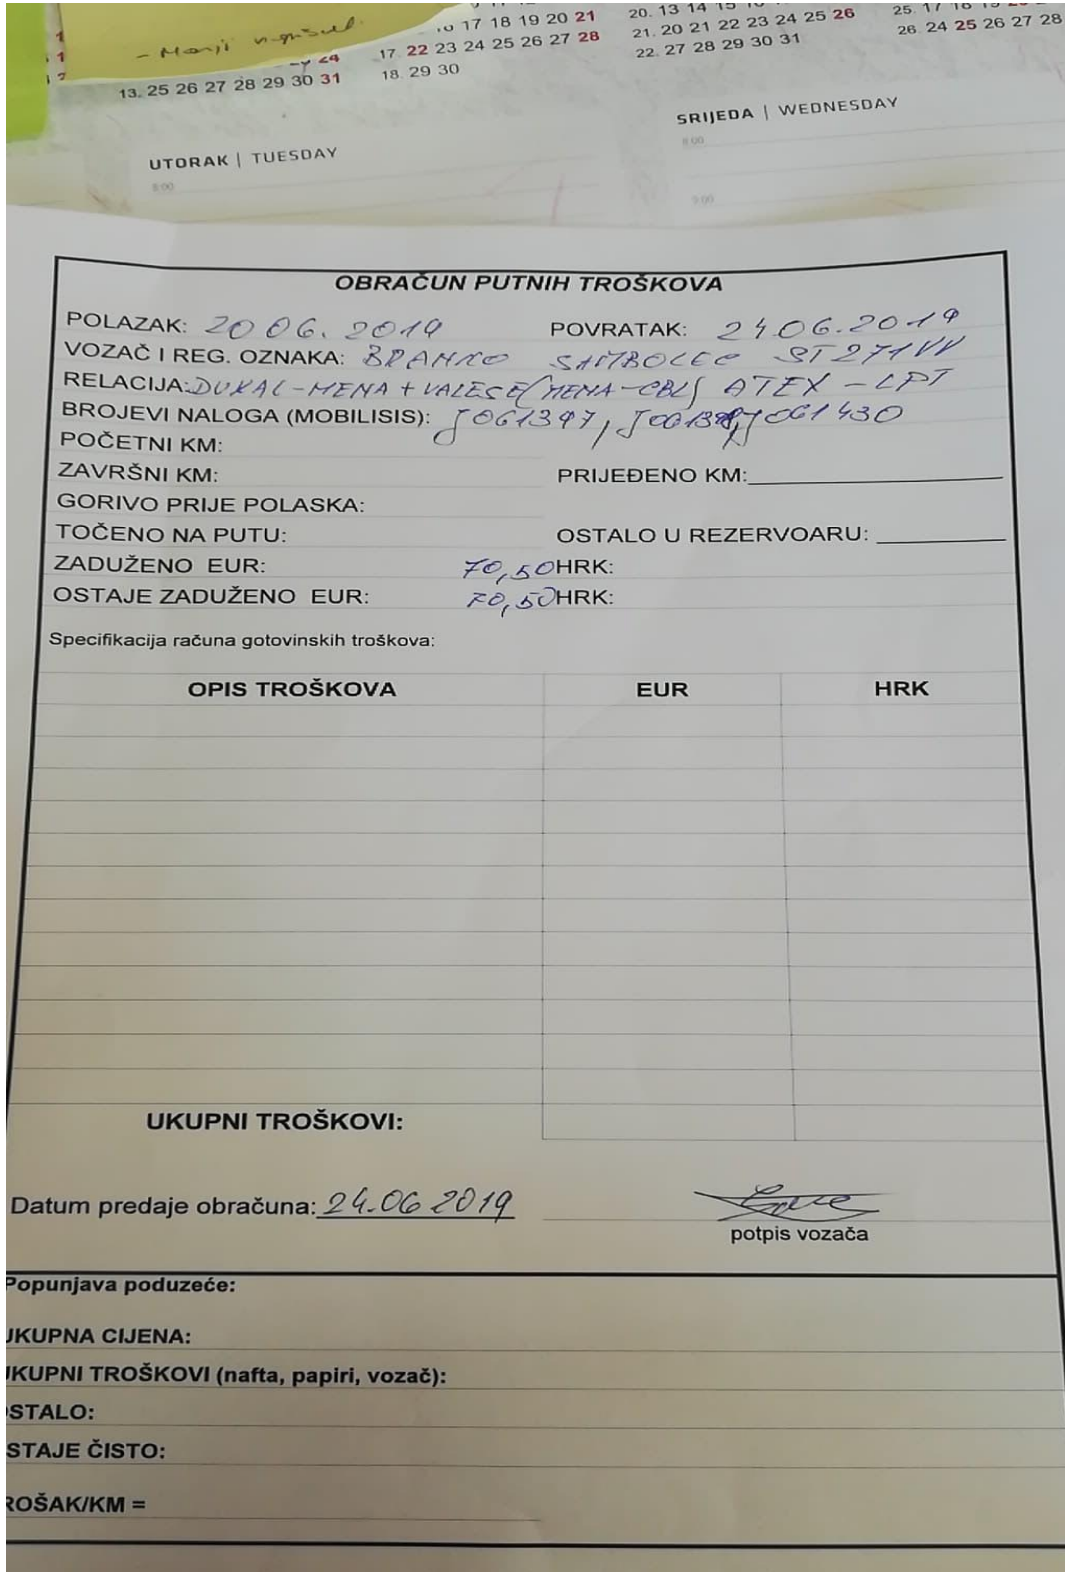 - Manji
16 17 18 19 20 21
20. 13 14 15 16
25. 17 18 19
24
17. 22 23 24 25 26 27 28
21. 20 21 22 23 24 25 26
26. 24 25 26 27 28
13. 25 26 27 28 29 30 31
18. 29 30
22. 27 28 29 30 31
UTORAK | TUESDAY
8:00
SRIJEDA | WEDNESDAY
8:00
9:00
OBRAČUN PUTNIH TROŠKOVA
POLAZAK: 20 06. 2019 POVRATAK: 24.06.2019
VOZAČ I REG. OZNAKA: BRANKO SAMBOLEC ST 271 VV
RELACIJA: DUKAL-MENA + VALESE (MENA-CBL) ATEX - LPT
BROJEVI NALOGA (MOBILISIS): J061397, J061430
POČETNI KM:
ZAVRŠNI KM: PRIJEĐENO KM:
GORIVO PRIJE POLASKA:
TOČENO NA PUTU: OSTALO U REZERVOARU:
ZADUŽENO EUR: 70,50 HRK:
OSTAJE ZADUŽENO EUR: 70,50 HRK:
Specifikacija računa gotovinskih troškova:
OPIS TROŠKOVA EUR HRK
UKUPNI TROŠKOVI:
Datum predaje obračuna: 24.06 2019
potpis vozača
Popunjava poduzeće:
UKUPNA CIJENA:
UKUPNI TROŠKOVI (nafta, papiri, vozač):
OSTALO:
STAJE ČISTO:
ROŠAK/KM =